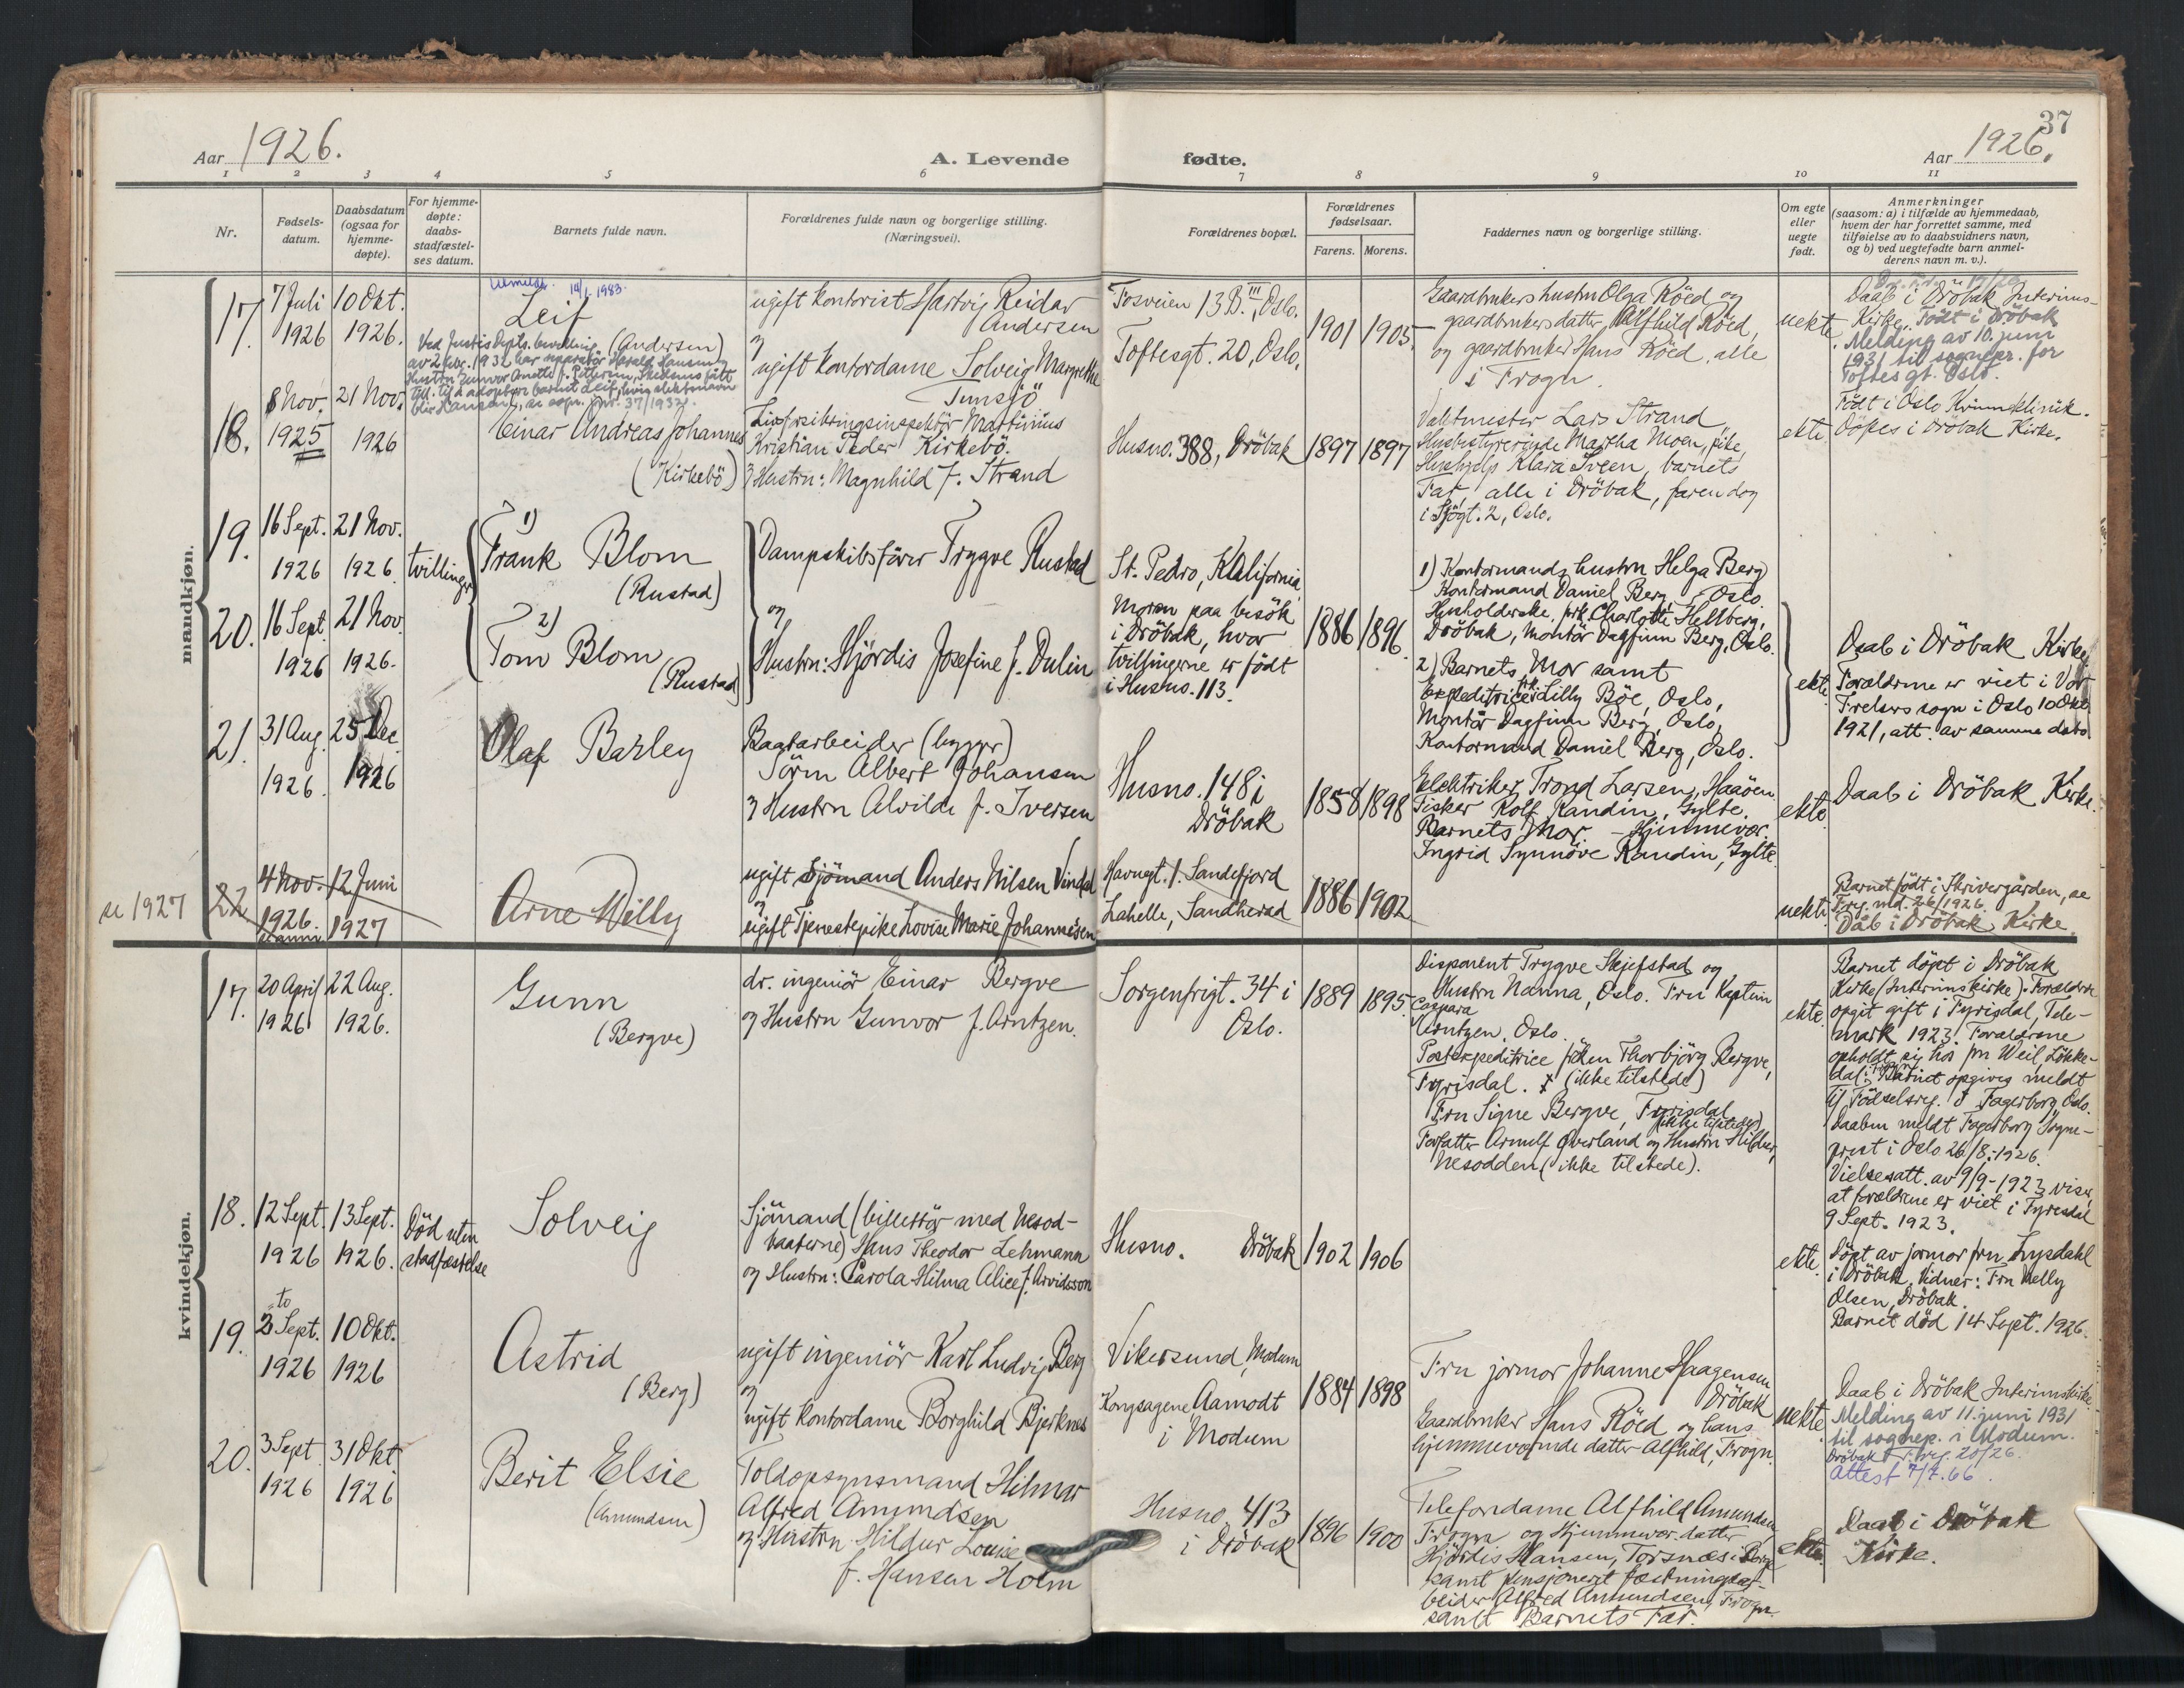 37
Aar 1926.
A. Levende fødte.
Aar 1926.
1 2 3 4 5 6 7 8 9 10 11
Nr.
Fødsels-
datum.
Daabsdatum
(ogsaa for
hjemme-
døpte).
For hjemme-
døpte:
daabs-
stadfæstel-
ses datum.
Barnets fulde navn.
Forældrenes fulde navn og borgerlige stilling.
(Næringsvei).
Forældrenes bopæl.
Forældrenes
fødselsaar.
Farens. Morens.
Faddernes navn og borgerlige stilling.
Om egte
eller
uegte
født.
Anmerkninger
(saasom: a) i tilfælde av hjemmedaab,
hvem der har forrettet samme, med
tilføielse av to daabsvidners navn,
og b) ved uegtefødte barn anmel-
derens navn m. v.).
mandkjøn.
17. 7 Juli
1926
10 Okt.
1926.
Utmeldt 14/1 1983
Leif
(Andersen)
Ved Justis Dpts. bevilling
av 2 febr. 1932 har reparatør Harald Hansen og
Hustru Gunvor Anette f. Pettersen, fått
till. til å adoptere barnet Leif, hvis slektsnavn
blir Hansen, 37/1932.
ugift kontorist Hartvig Reidar
Andersen
og
ugift kontordame Solveig Margrethe
Tunsjö
Fosveien 13 B. III, Oslo.
Toftesgt. 20, Oslo.
1901 1905
Gaardbrukers hustru Olga Röed og
gaardbrukers datter Alfhild Röed,
og gaardbruker Hans Röed, alle
i Frogn.
uekte
Daab i Dröbak Interims-
Kirke. Födt i Dröbak
Melding av 10. juni
1931 til sognepr. for
Toftes gt. Oslo.
18. 8 Nov.
1925
21 Nov.
1926
Einar Andreas Johannes
(Kirkebö)
Livsforsikringsinspektör Martinius
Kristian Peder Kirkebö.
og Hustru: Magnhild f. Strand
Husno. 388, Dröbak
1897 1897
Vaktmester Lars Strand,
Husbestyrerinde Martha Moen, pike,
Hushjelp Klara Sveen, barnets
Far, alle i Dröbak, faren dog
i Sjögt. 2, Oslo.
ekte.
Födt i Oslo Kvindeklinik.
Döpes i Dröbak Kirke.
19. 16 Sept.
1926
21 Nov.
1926
tvillinger
1)
Frank Blom
(Rustad)
Dampskibsförer Trygve Rustad
20. 16 Sept.
1926
21 Nov.
1926.
2)
Tom Blom
(Rustad)
og
Hustru: Hjördis Josefine f. Dulin
St. Pedro, Kalifornia
Moren paa besök
i Dröbak, hvor
tvillingerne er födt
i Husno. 113.
1886 1896.
1) Kontormands hustru Helga Berg
Kontormand Daniel Berg, Oslo.
Husholderske, frk. Charlotte Hellberg,
Dröbak, Montör Dagfinn Berg, Oslo.
2) Barnets Mor samt
Expeditrice frk. Lilly Böe, Oslo,
Montör Dagfinn Berg, Oslo,
Kontormand Daniel Berg, Oslo.
ekte
Daab i Dröbak Kirke
Forældrene er viet i Vor
Frelsers sogn i Oslo 10 Okt.
1921, att. av samme dato.
21. 31 Aug.
1926.
25 Dec.
1926
Olaf Barley
Bagarbeider (bygger)
Sörm Albert Johansen
og Hustru Alvilde f. Iversen
Husno. 148 i
Dröbak
1858 1898
Elektriker Trond Larsen, Haaöen.
Fisker Rolf Randin, Gylte.
Barnets Mor. - Hjemmevær.
Ingrid Synnöve Randin, Gylte.
ekte
Daab i Dröbak Kirke.
se 1927
22 4 Nov.
1926.
12 Juni
1927
Arne Willy
ugift Sjömand Anders Nilsen Vindal
og
ugift Tjenestepike Lovise Marie Johannesen
Havnegt. 1. Sandefjord
Lahelle, Sandherad
1886 1902
uekte
Barnet födt i Skrivergården, se
Frg. md. 26/1926.
Dåb i Dröbak Kirke.
kvindekjøn.
17. 20 April
1926
22 Aug.
1926.
Gunn
(Bergve)
dr. ingeniör Einar Bergve
og Hustru Gunvor f. Arntzen.
Sorgenfrigt. 34 i
Oslo.
1889 1895.
Disponent Trygve Skjefstad og
Hustru Nanna, Oslo. Fru Kaptein
Caspara
Arntzen, Oslo.
Postexpeditrice fröken Thorbjörg Bergve,
Fyrisdal. (ikke tilstede)
Fru Signe Bergve, Fyrisdal
(ikke tilstede)
Forfatter Arnulf Överland og Hustru Hildur,
Nesodden (ikke tilstede).
ekte.
Barnet döpt i Dröbak
Kirke (Interimskirke). Forældrene
opgit gift i Fyrisdal, Tele-
mark 1923. Forældrene
opholdt sig hos fru Weil, Lökke-
dal. Barnet opgives meldt
til Födselsreg. i Fagerborg, Oslo.
Daaben meldt Fagerborg Sogne-
prest i Oslo 26/8.1926.
Vielsesatt. av 9/9-1923 viser
at forældrene er viet i Fyresdal
9 Sept. 1923.
18. 12 Sept.
1926
13 Sept.
1926.
Död uten
stadfæstelse
Solveig
Sjömand (billettör med Nesod-
baaterne) Hans Theodor Lehmann
og Hustru: Carola Hilma Alice f. Arvidsson
Husno. Dröbak
1902 1906
ekte.
Döpt av jormor fru Lysdahl
i Dröbak. Vidner: Fru Nelly
Olsen, Dröbak.
Barnet död 14 Sept. 1926.
19. to
2 Sept.
1926
10 Okt.
1926
Astrid
(Berg)
ugift ingeniör Karl Ludvig Berg
og
ugift kontordame Borghild Bjerknes
Vikersund, Modum
Kongsagene Aamodt
i Modum
1884 1898
Fru jormor Johanne Haagensen
Dröbak
Gaardbruker Hans Röed og hans
hjemmeværende datter Alfhild, Frogn.
uekte.
Daab i Dröbak Interimskirke
Melding av 11. juni 1931
til sognepr. i Modum.
Dröbak F. reg. 20/26.
Attest 7/7.66.
20. 3 Sept
1926
31 Okt
1926
Berit Elsie
(Amundsen)
Toldopsynsmand Hilmar
Alfred Amundsen
og Hustru Hildur Louise
f. Hansen Holm
Husno. 413
i Dröbak
1896 1900
Telefondame Alfhild Amundsen
Frogn og Hjemmevær. datter
Hjördis Hansen, Torsnæs i Borge
samt pensjonert fæstningsar-
beider Alfred Amundsen, Frogn
samt Barnets Far.
ekte.
Daab i Dröbak
Kirke.